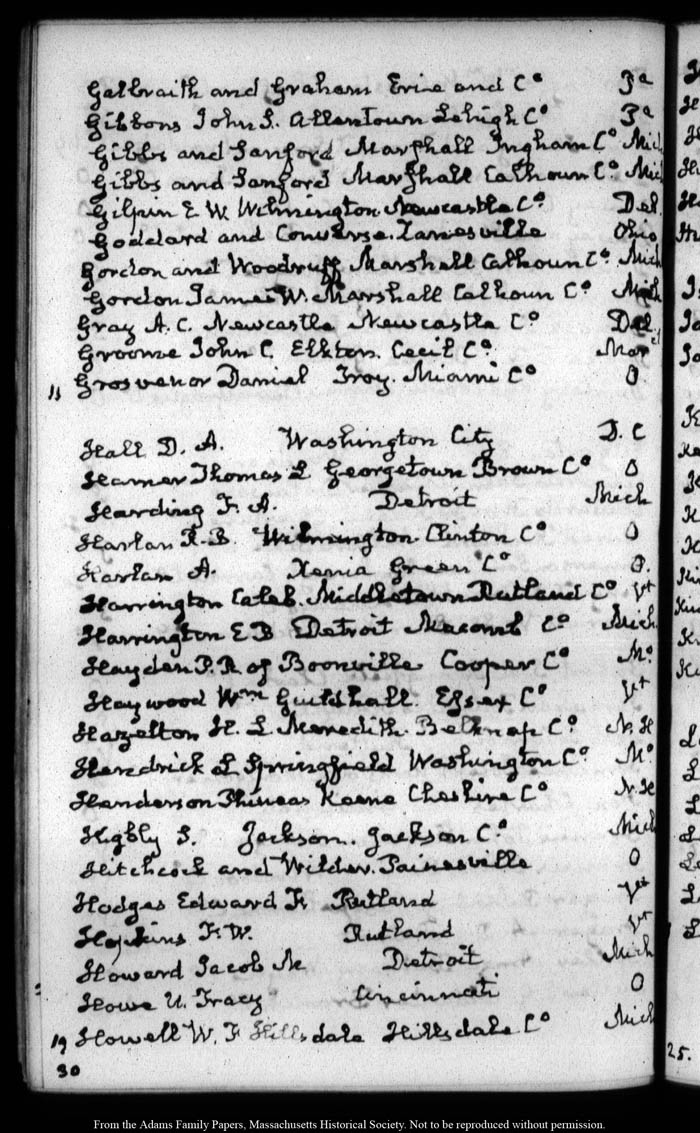 Galbraith and Graham Erie and Co Pa
Gibbons John S. Allentown Lehigh Co Pa
Gibbs and Sanford Marshall Ingham Co Mich
Gibbs and Sanford Marshall Calhoun Co Mich
Gilpin E W. Wilmington Newcastle Co Del.
Goddard and Converse. Zanesville Ohio
Gordon and Woodruff Marshall Calhoun Co Mich
Gordon James W. Marshall Calhoun Co Mich
Gray A. C. Newcastle Newcastle Co Del
Groome John C. Elkton. Cecil Co.
11 Grosvenor Daniel Troy. Miami Co O.
Hall D. A. Washington City D. C
Hamer Thomas L Georgetown Brown Co O
Harding F. A. Detroit Mich
Harlan R. B. Wilmington Clinton Co O
Harlan A. Xenia Green Co O.
Harrington Caleb. Middletown Rutland Co Vt
Harrington E B Detroit Macomb Co Mich
Hayden P. R. of Boonville Cooper Co Mo
Haywood Wm Guildhall. Essex Co Vt
Hazelton H. L. Meredith Belknap Co N. H
Hendrick L Springfield Washington Co Mo
Henderson Phineas Keene Cheshire Co N. H
Higbly S. Jackson. Jackson Co Mich
Hitchcock and Wilder. Painesville O
Hodges Edward F. Rutland Vt
Hopkins F. W. Rutland Vt
Howard Jacob M Detroit Mich
Howe U. Tracy Cincinnati O
19 Howell W. F Hillsdale Hillsdale Co Mich
30
25.
From the Adams Family Papers, Massachusetts Historical Society. Not to be reproduced without permission.